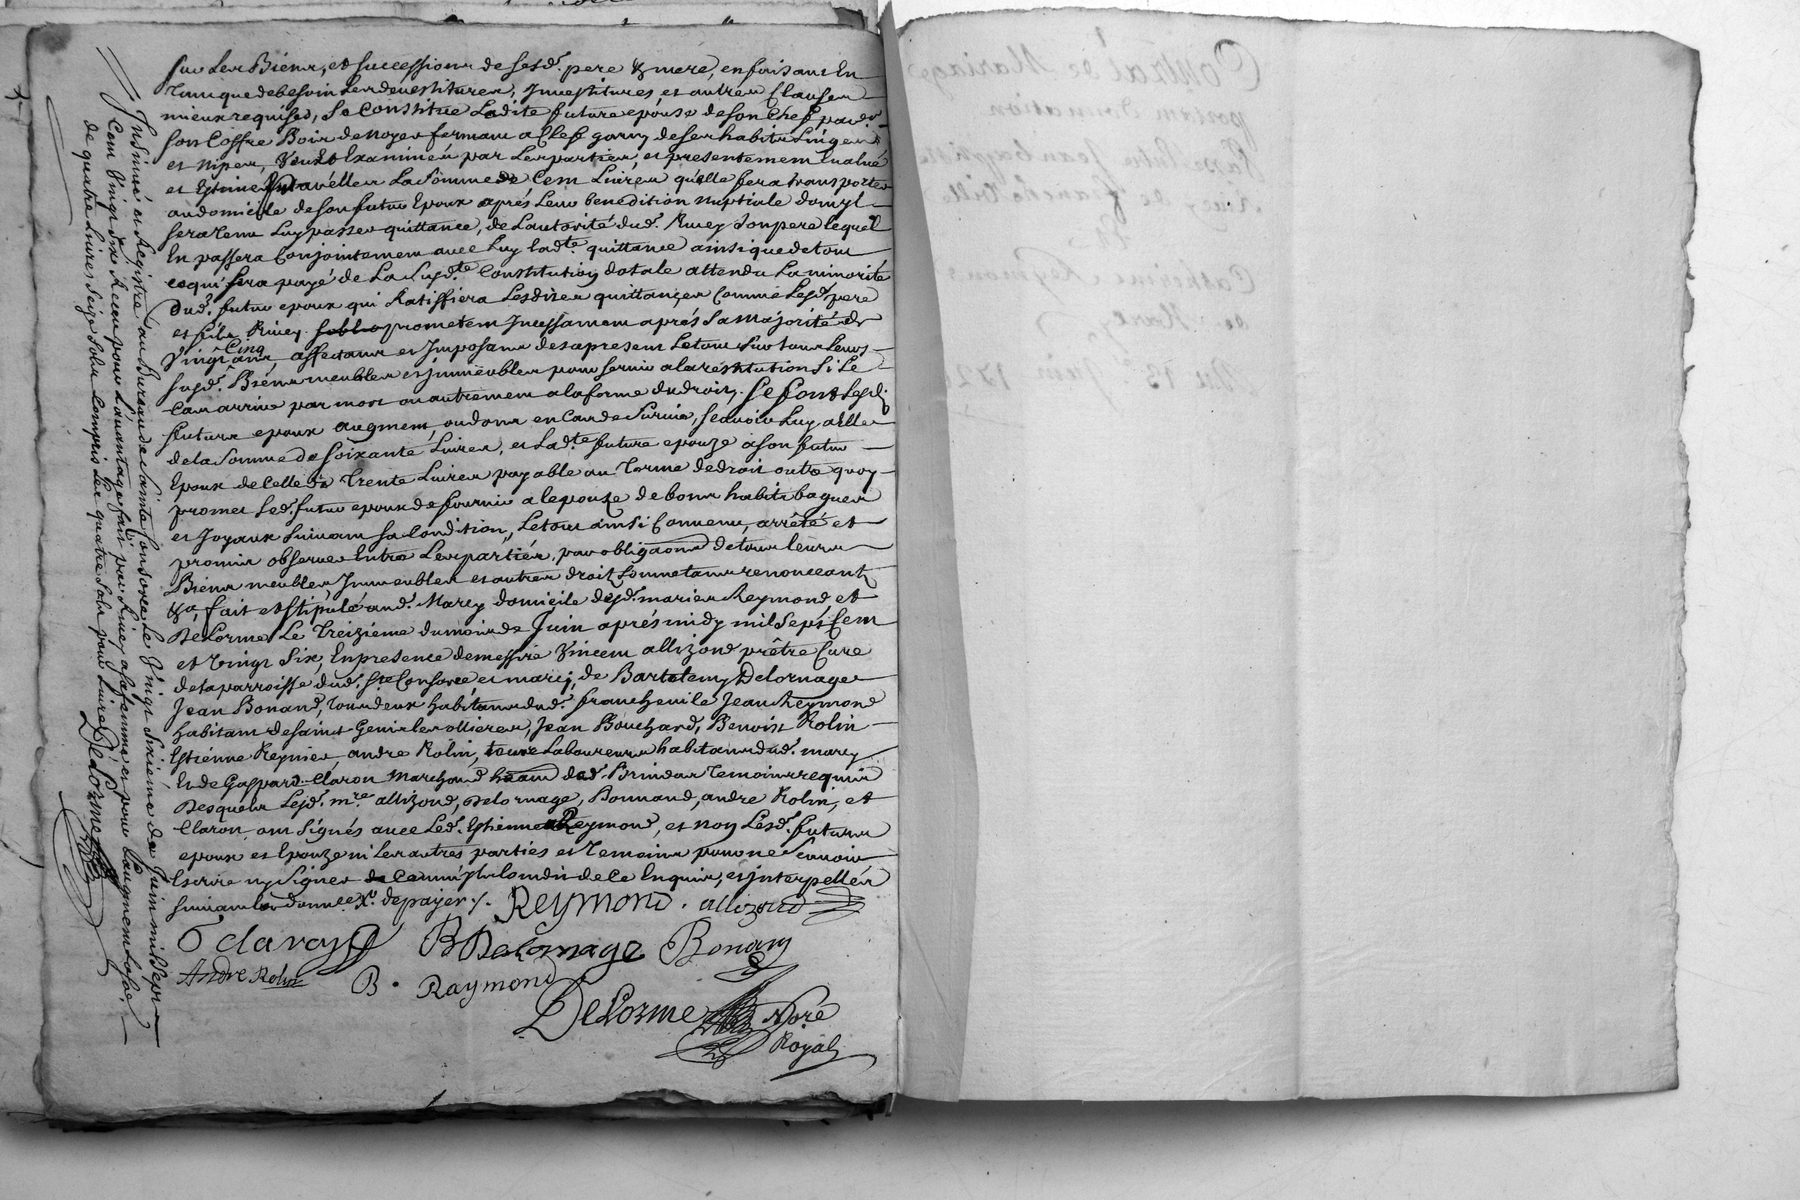 sur les Biens, et successions de sesd. pere & mere, en faisant En
tant que de besoin les devestitures, Investitures et autres Clauses
mieux requises, Se Constitue Ladite future epouse de son Chef par
son Coffre Bois de noyer fermant a Clef garny de ses habits Linges
et nipes, Veu Et Examinés par Les parties, et presentement Evalué
et Estimé La Somme de Cent Livres qu'elle fera transporter
au domicile de son futur Epoux aprés Leur benediction nuptiale dont yl
sera tenu Luy passer quittance, de L'autorité dud. Rivey son pere lequel
En passera Conjointement avec Luy lad.te quittance ainsi que de tout
ce qui sera payé de La Susd.te Constitution dotale attendu La minorité
Dud. futur epoux qui Ratiffiera Lesdites quittances Comme Lesd. pere
et fils Rivey prometent Incessament aprés Sa Majorité de
Vingt Cinq ans affectant et Imposant des a present Le tout Sur tous Leurs
susd. Biens meubles et jmmeubles pour servir a la restitution Si Le
Cas arrive par mort ou autrement a la forme du droit, Se font Lesd.
futurs epoux augment, ou dons en Cas de Survie, Scavoir Luy a Elle
de la Somme de soixante Livres, et Lad.te future epouze a son futur
Epoux de Celle de Trente Livres payable au Terme de droit outre quoy
promet Led. futur epoux de fournir a l'epouze de bons habits bagues
et Joyaux suivant sa Condition, Le tout ainsi Convenu, arrêté et
promis observer Entre Les parties, par obligaons de tous leurs
Biens meubles Immeubles et autres droits Soumetans renonceant
&a, fait et stipulé aud. Marcy domicile desd. mariés Reymond et
DeLorme Le Treizieme du mois de Juin aprés midy mil Sept Cent
et vingt Six, En presence de messire Vincent allizond prêtre Cure
de la parroisse dud. Ste Consorce et marcy, de Bartelemy Delornage
Jean Bonand, tous deux habitans dud. francheville Jean Reymond
habitant de saint Genis les ollieres, Jean Bouchard, Benoist Rolin
Estienne Reynier, andré Rolin, tous Laboureurs habitans dud. marcy
Et de Gaspard Claron Marchand dud. Brindas Temoins requis
Desquels Lesd. m.re allizond, Delornage, Bonnand, andre Rolin, et
Claron, ont Signés avec Led. Estienne Reymond, et non Lesd. futurs
epoux et Epouze ni Les autres parties et Temoins pour ne Scavoir
Escrire ny Signer de Ce Enquis, et interpellés
suivant l'ordonnce Xo. de payer ./. Reymond . allizond
claron B Delornage Bonan
André Rolin B . Raymond
DeLorme Nore
Royal
Insinué et Registré au Bureau de Sainte Consorce Le Vingt Sixieme de Juin mil Sept
Cent Vingt Six Receu pour L'avantage fait par Rivey a sa femme et pour L'augment
de quatre Livres Seize Sols Compris Les quatre Sols pour Livre DeLorme
Contrat de Mariage
portant donnation
Passé Entre Jean Baptiste
Rivey de
Et
Catherine Reymond
de Marcy
Du 13 Juin 1726